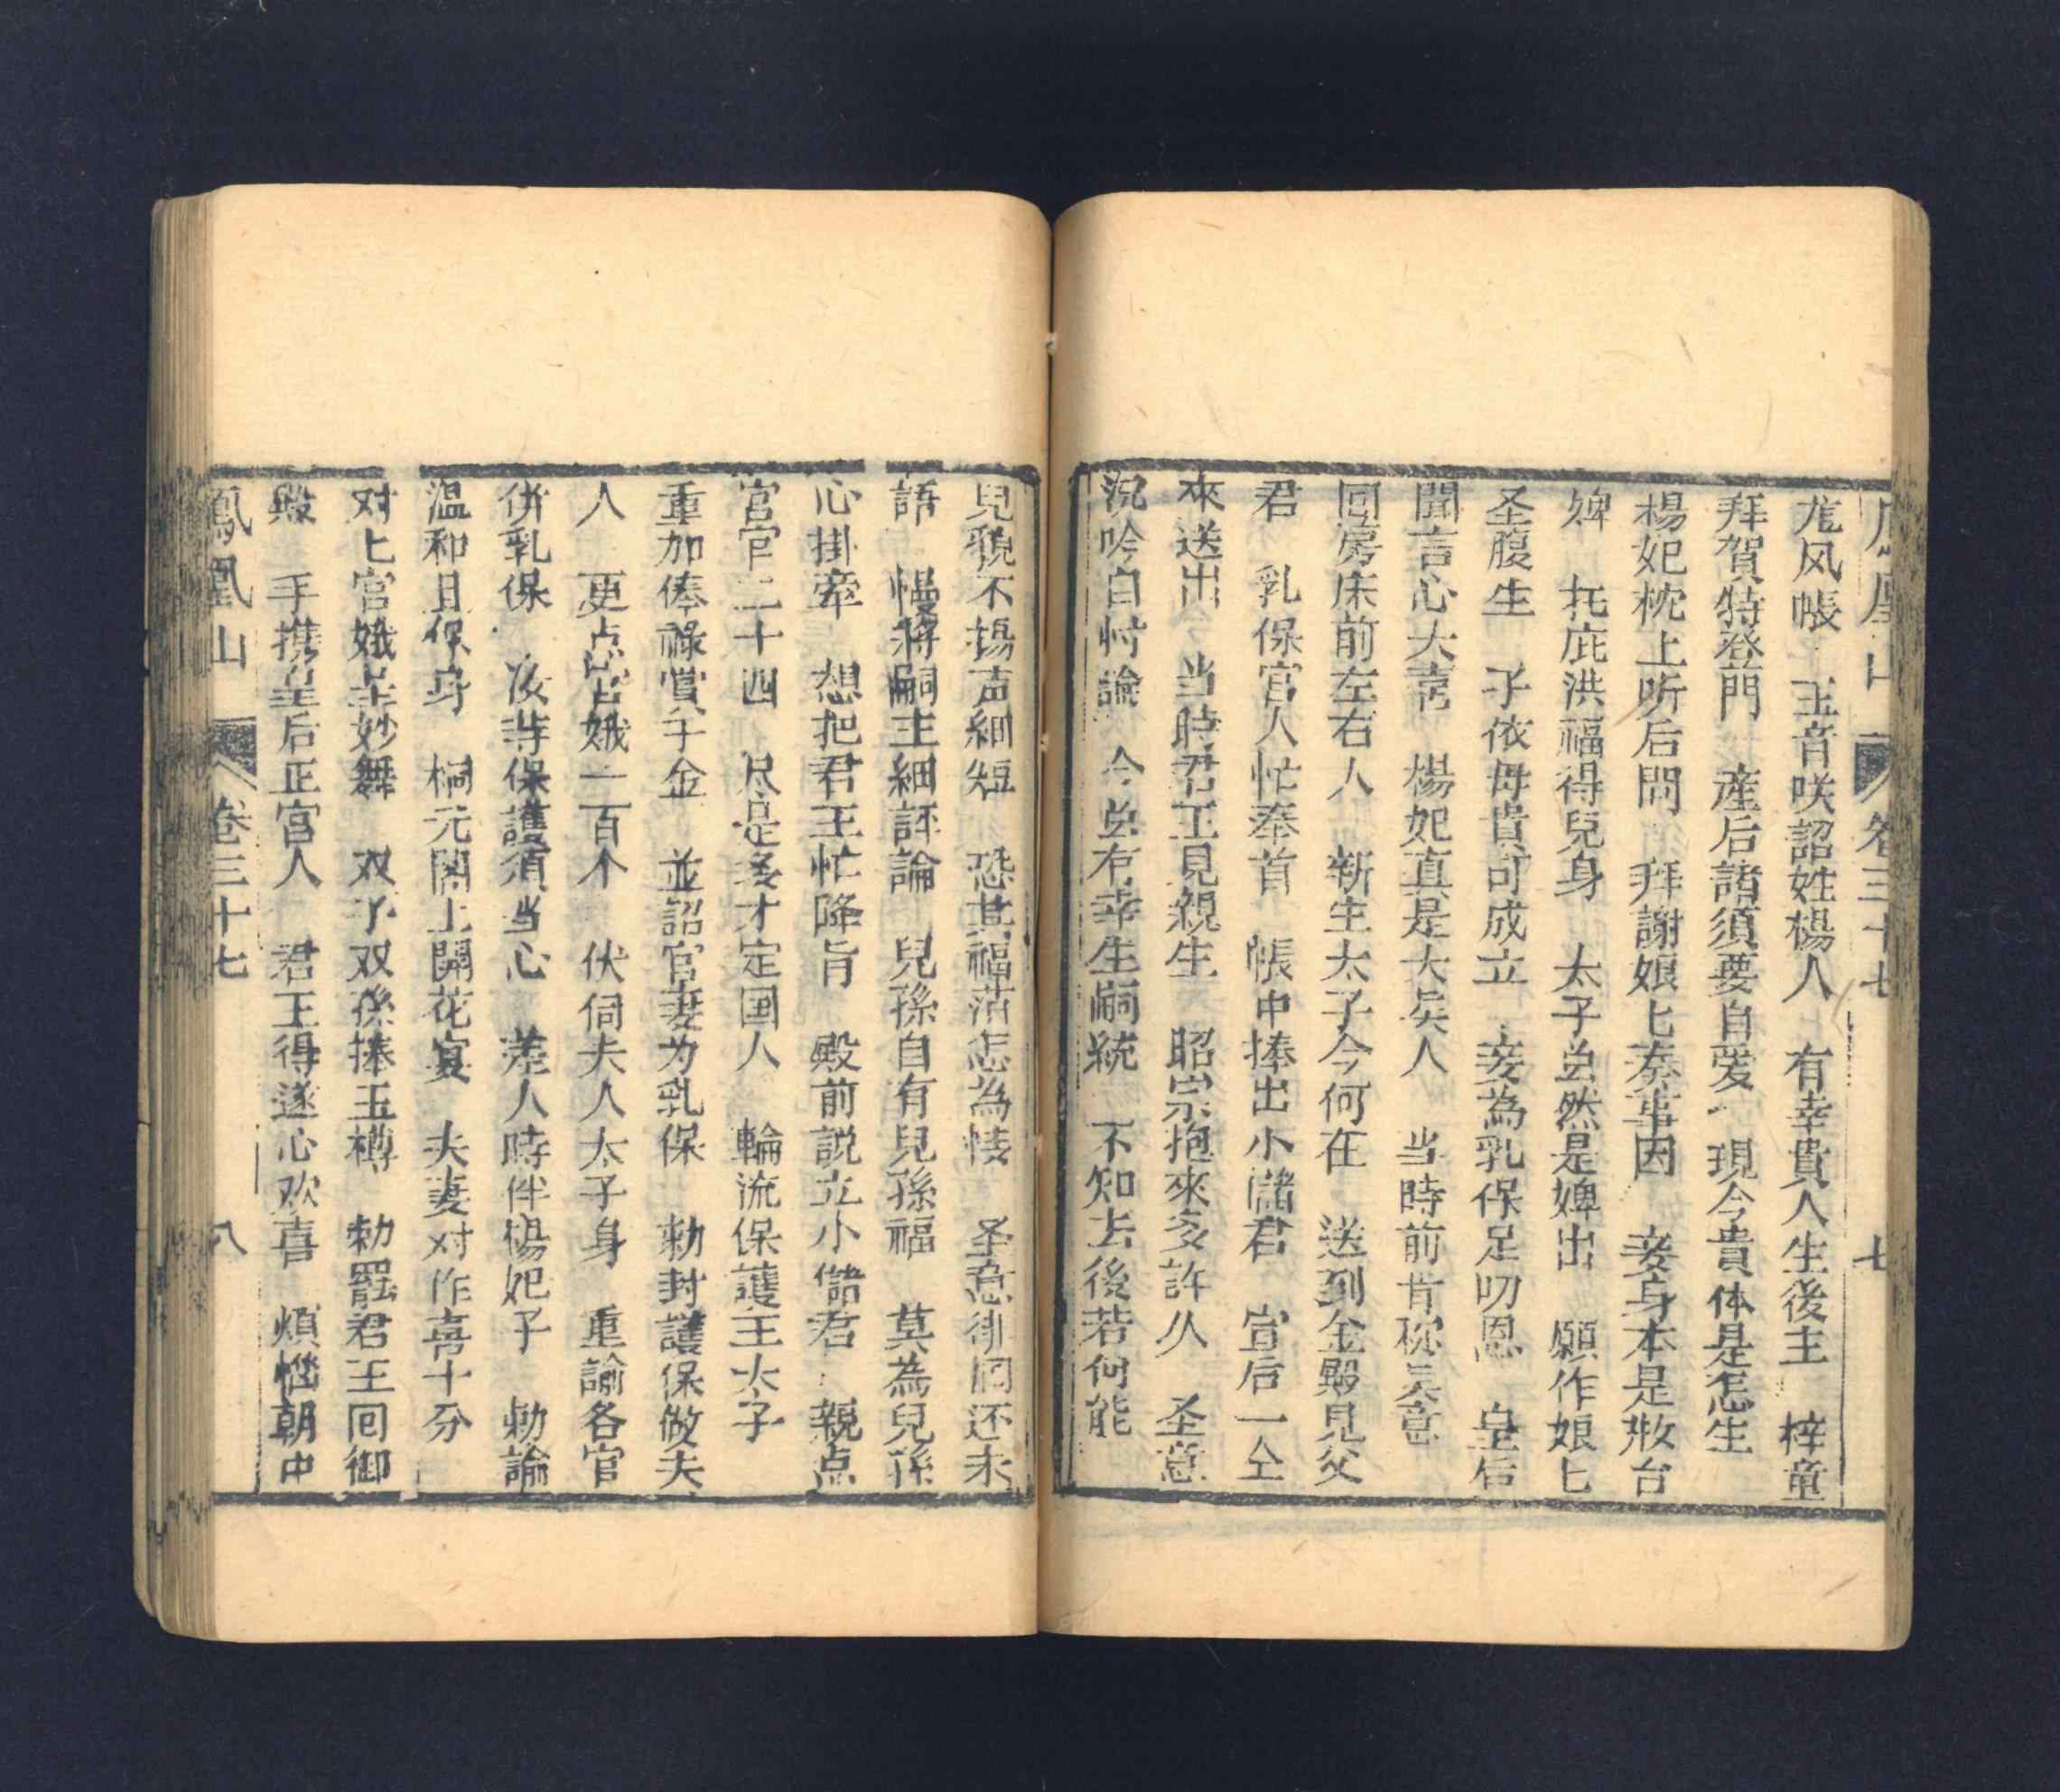 卷三十七 七
龙风帳 玉音咲詔姓楊人 有幸貴人生後主 梓童
拜賀特登門 產后諸須要自爱 現今貴体是怎生
楊妃枕上听后問 拜謝娘匕奏事因 妾身本是妝台
婢 托庇洪福得兒身 太子虽然是婢出 願作娘匕
圣腹生 子依母貴可成立 妾為乳保足叨恩 皇后
聞言心大喜 楊妃真是大矣人 当時前旨称
回房床前左右人 新生太子今何在 送到金殿見父
君 乳保官人忙奉首 帳中捧出小儲君 宣后一仝
來送出 当時君王見親生 昭宗抱來多許久 圣意
沉吟自忖論 今虽有幸生嗣統 不知去後若何能
兒貌不揚声細短 恐其福薄怎為情 圣意徘徊还未
語 慢將嗣主細評論 兒孫自有兒孫福 莫為兒孫
心掛牽 想把君王忙降旨 殿前説立小儲君 親点
宫官二十四 尽是多才定国人 輪流保護王太子
重加俸祿賞千金 並詔官妻为乳保 勅封護保做夫
人 更点宫娥一百个 伏伺夫人太子身 重諭各官
併乳保 汝等保護須当心 差人時伴楊妃子 勅諭
温和且保身 桐元閣上開花宴 夫妻对作喜十分
对匕官娥呈妙舞 双子双孫捧玉樽 勅罷君王回御
殿 手携皇后正宫人 君王得遂心欢喜 煩惱朝中
鳳凰山 卷三十七 八